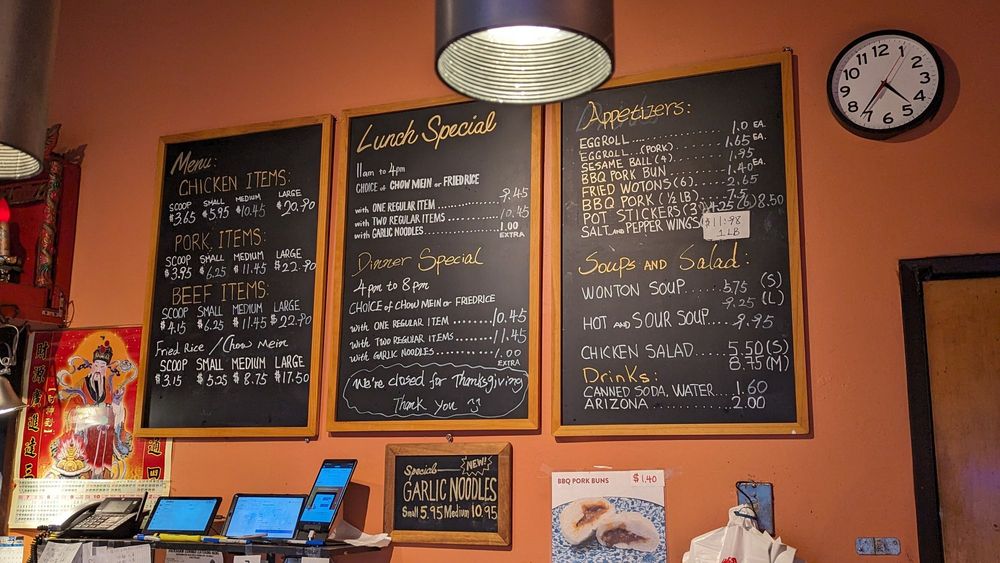 Menu:
CHICKEN ITEMS:
SCOOP SMALL MEDIUM LARGE
$3.65 $5.95 $10.45 $20.90
PORK ITEMS:
SCOOP SMALL MEDIUM LARGE
$3.95 $6.25 $11.45 $22.90
BEEF ITEMS:
SCOOP SMALL MEDIUM LARGE
$4.15 $6.25 $11.45 $22.90
Fried Rice / Chow mein
SCOOP SMALL MEDIUM LARGE
$3.15 $5.25 $8.75 $17.50
Lunch Special
11am to 4pm
CHOICE of CHOW MEIN or FRIED RICE
with ONE REGULAR ITEM ........ 9.45
with TWO REGULAR ITEMS ........ 10.45
with GARLIC NOODLES ........ 1.00
EXTRA
Dinner Special
4pm to 8pm
CHOICE of CHOW MEIN or FRIED RICE
with ONE REGULAR ITEM ........ 10.45
with TWO REGULAR ITEMS ........ 11.45
with GARLIC NOODLES ........ 1.00
EXTRA
We're closed for Thanksgiving
Thank you
Appetizers:
EGGROLL .... 1.0 EA.
EGGROLL (PORK) .... 1.65 EA.
SESAME BALL (4) .... 1.95
BBQ PORK BUN .... 1.40 EA.
FRIED WOTONS (6) .... 2.65
BBQ PORK (½ LB) .... 7.5
POT STICKERS (3) 4.25 (6) 8.50
SALT and PEPPER WINGS $11.98
1 LB
Soups AND Salad:
WONTON SOUP .... 5.75 (S)
9.25 (L)
HOT AND SOUR SOUP .... 9.95
CHICKEN SALAD ..... 5.50 (S)
8.75 (M)
Drinks:
CANNED SODA, WATER .... 1.60
ARIZONA ........ 2.00
12 1 2 3 4 5 6 7 8 9 10 11
Specials NEW!
GARLIC NOODLES
Small 5.95 Medium 10.95
BBQ PORK BUNS $1.40
財源廣進達三